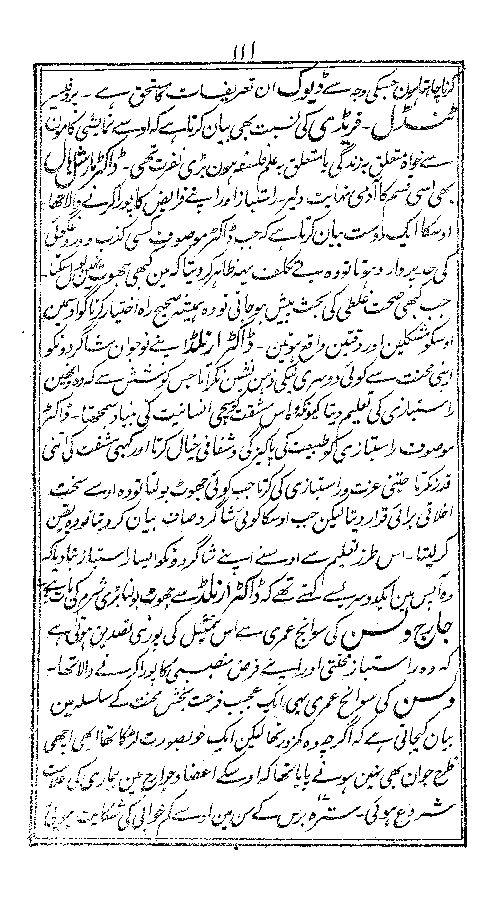 ۱۱۱
کرنا چاہتا ہون جسکی وجہ سے ڈیوک ان تعریفات کا مستحق ہے - پروفیسر
ٹنڈل - فریڈی کی نسبت بھی بیان کرتا ہے کہ اوسے نمایشی کامون
سے خواہ متعلق بہ زندگی یا متعلق بہ علم فلسفہ ہون بڑی نفرت تھی - ڈاکٹر مارشل ہال
بھی اسی قسم کا آدمی نہایت دلیر راستباز اور اپنے فرایض کا پورا کرنے والا تھا
اوسکا ایک دوست بیان کرتا ہے کہ جب ڈاکٹر موصوف کسی کذب و دروغگوئی
کی حد پر وارد ہوتا تو وہ بے تکلف یہ ظاہر کر دیتا کہ مین کبھی جھوٹ نہین بول سکتا -
جب کبھی صحت و غلطی کی بحث پیش ہو جاتی تو وہ ہمیشہ صحیح راہ اختیار کرتا گو اوسمین
اوسکو مشکلین اور دقتین واقع ہوتین - ڈاکٹر ارنلڈ اپنے نوجوان شاگردونکو
اپنی محنت سے کوئی دوسری نیکی ذہن نشین نکراتا جس کوشش سے کہ وہ اونھین
راستبازی کی تعلیم دیتا کیونکہ اس صفت کو سچی انسانیت کی بنیاد سمجھتا - ڈاکٹر
موصوف راستبازی کو طبیعت کی پاکیزگی و شفافی خیال کرتا اور کسی صفت کی اتنی
قدر نکرتا جتنی عزت و راستبازی کی کرتا جب کوئی جھوٹ بولتا تو وہ اوسے سخت
اخلاقی برائی قرار دیتا لیکن جب اوسکا کوئی شاگرد صاف بیان کر دیتا تو وہ یقین
کر لیتا - اس طرز تعلیم سے اوسنے اپنے شاگردونکو ایسا راستباز بنا دیا کہ
وہ آپس مین ایکدوسرے سے کہتے تھے کہ ڈاکٹر ارنلڈ سے جھوٹ بولنا بڑی شرم کی بات ہے
جارج ولسن کی سوانح عمری سے اس تمثیل کی پوری تصدیق ہوتی ہے
کہ وہ راستباز محنتی اور اپنے فرض منصبی کا پورا کرنے والا تھا -
ولسن کی سوانح عمری بھی ایک عجیب فرحت بخش محنت کے سلسلہ مین
بیان کیجاتی ہے کہ اگرچہ وہ کمزور تھا لیکن ایک خوبصورت لڑکا تھا ابھی اچھی
طرح جوان بھی نہین ہونے پایا تھا کہ اوسکے اعضا و جوارح مین بیماری کی علامت
شروع ہوئی - سترہ برس کے سن مین اوسے کم خوابی کی شکایت